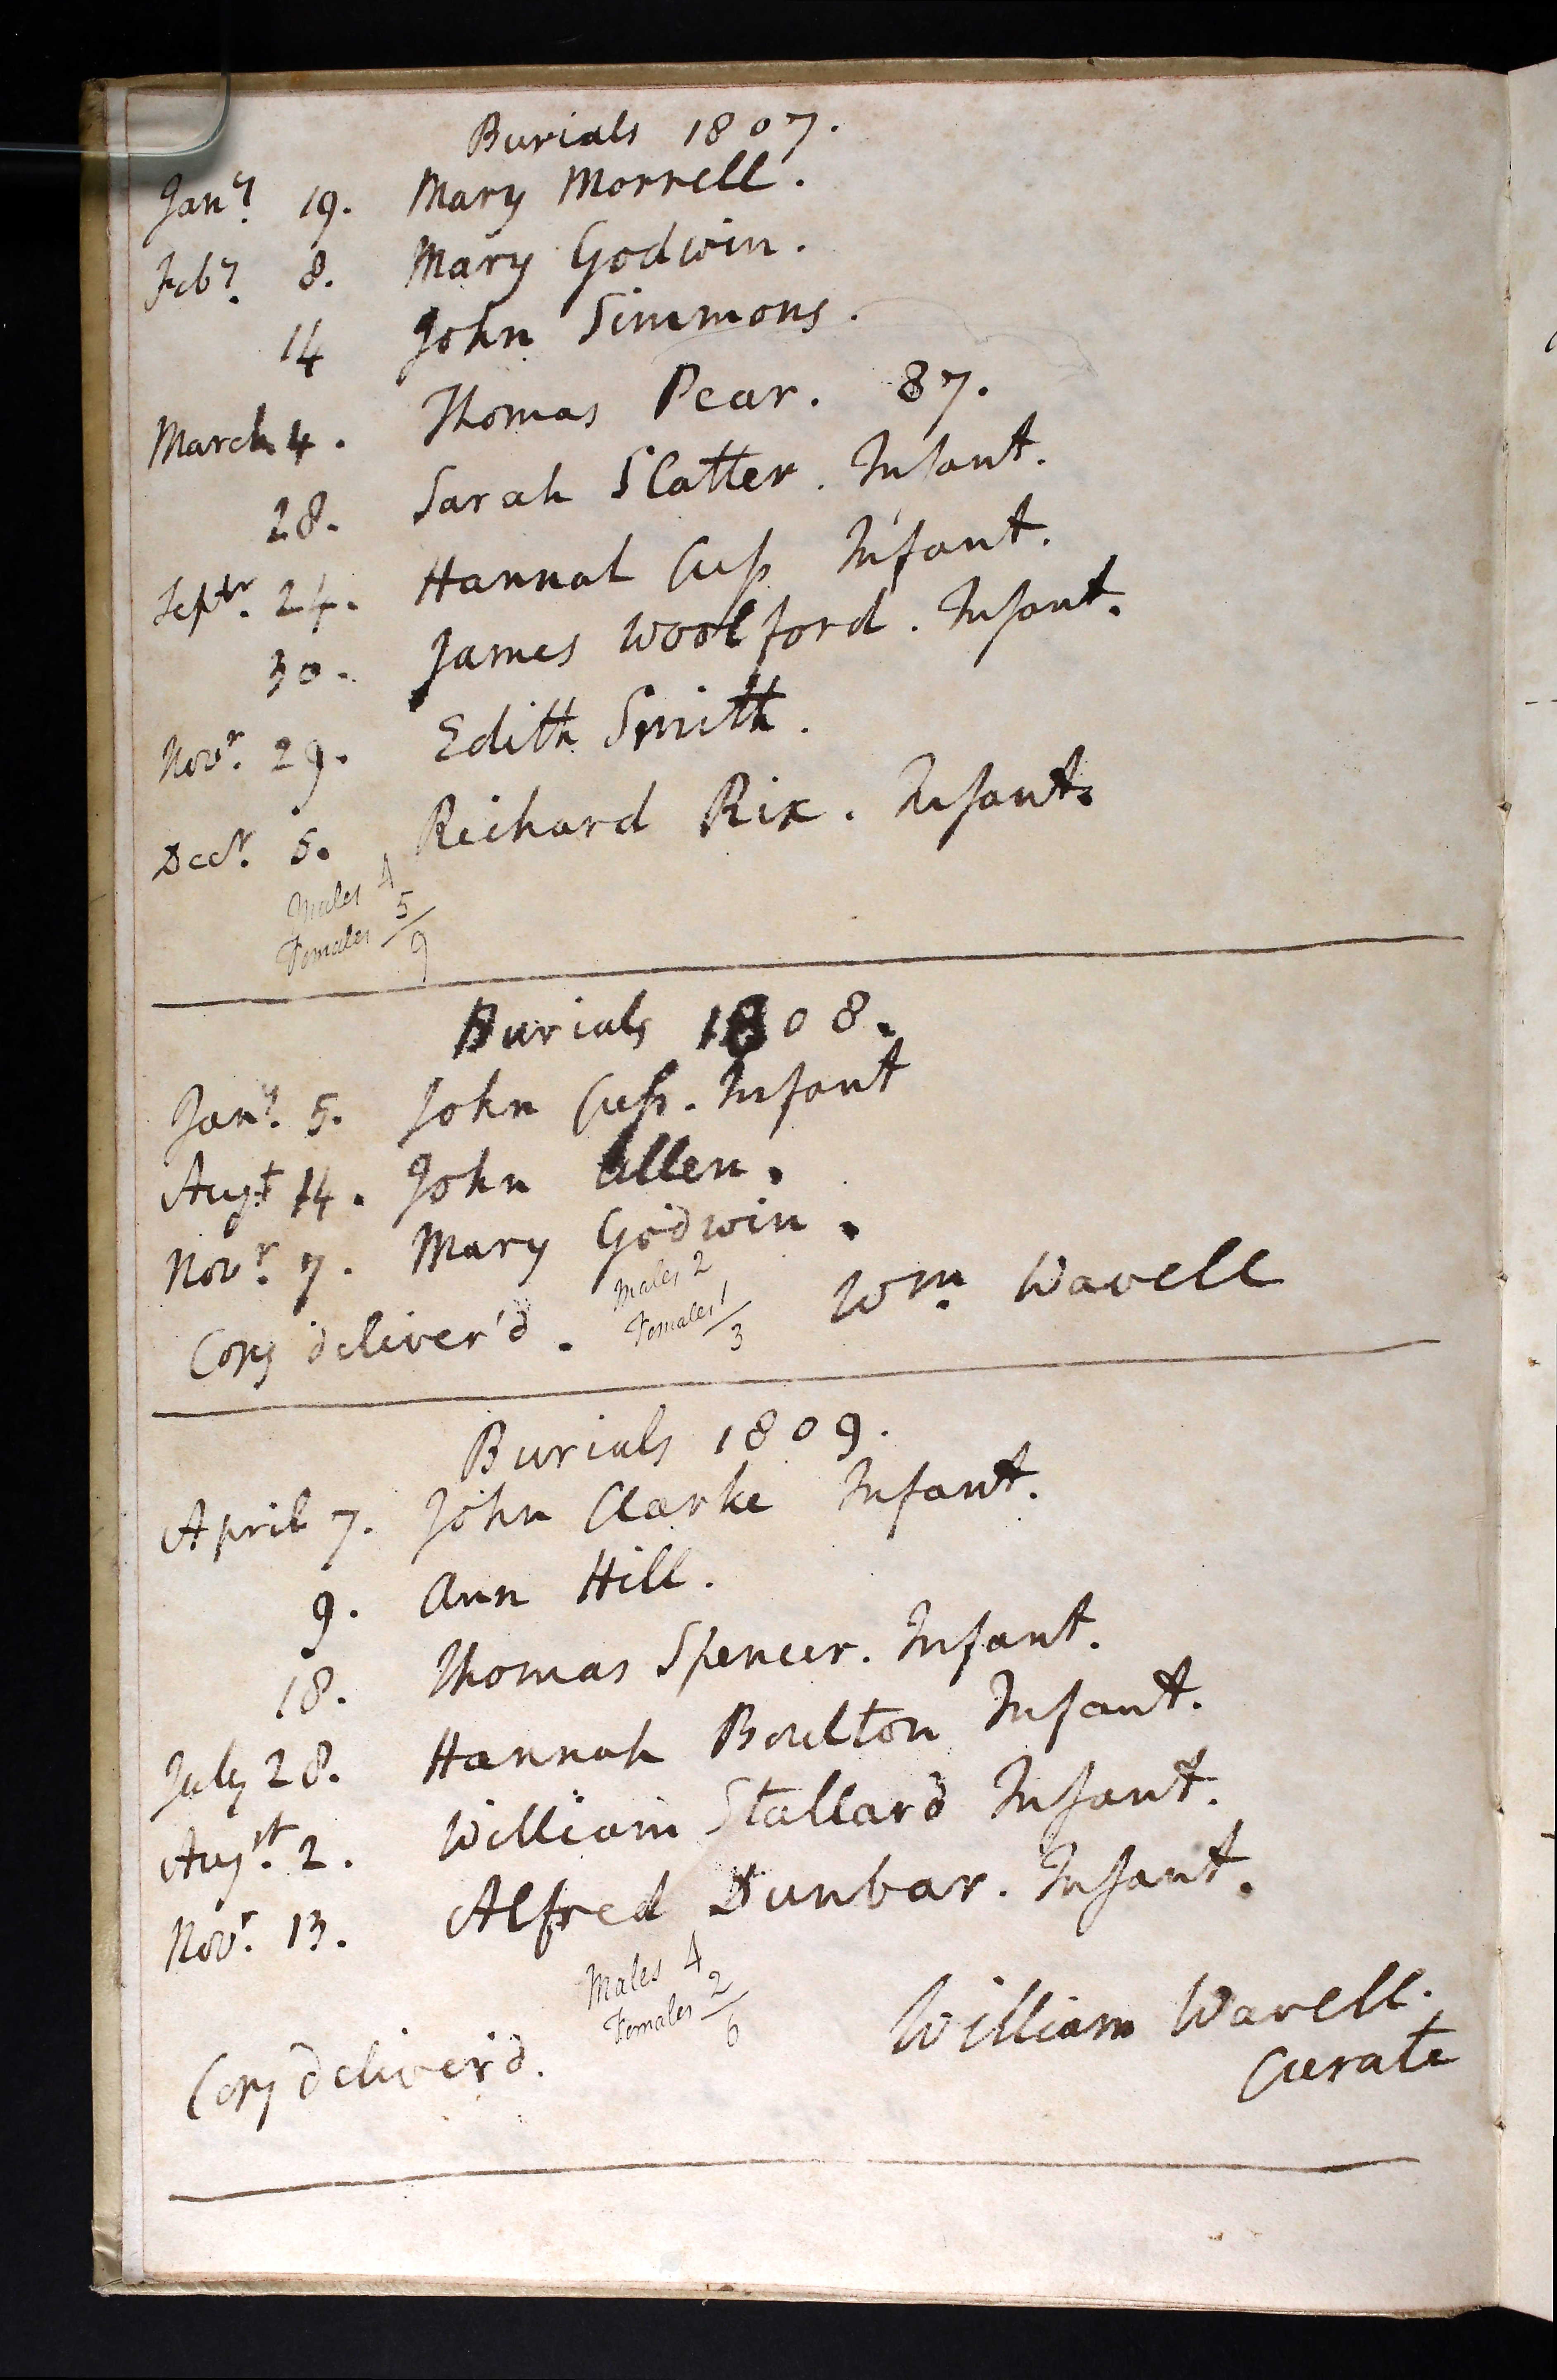 Burials 1807.
Jany. 19. Mary Morrell.
Feby. 8. Mary Godwin.
14 John Simmons.
March 4. Thomas Pear. 87.
28. Sarah Slatter. Infant.
Septr. 24. Hannah Cuſs Infant.
30. James Woolford. Infant.
Novr. 29. Edith Smith.
Decr. 5. Richard Rix. Infant.
Males 4
Females 5
9
Burials 1808.
Jany. 5. John Cuſs. Infant
Augt. 14. John Allen.
Novr. 7. Mary Godwin.
Males 2
Females 1
3
Copy deliver'd. Wm. Wavell
Burials 1809.
April 7. John Clarke Infant.
9. Ann Hill.
18. Thomas Spencer. Infant.
July 28. Hannah Boulton Infant.
Augst. 2. William Stallard Infant.
Novr. 13. Alfred Dunbar. Infant.
Males 4
Females 2
6
Copy deliver'd. William Wavell.
Curate